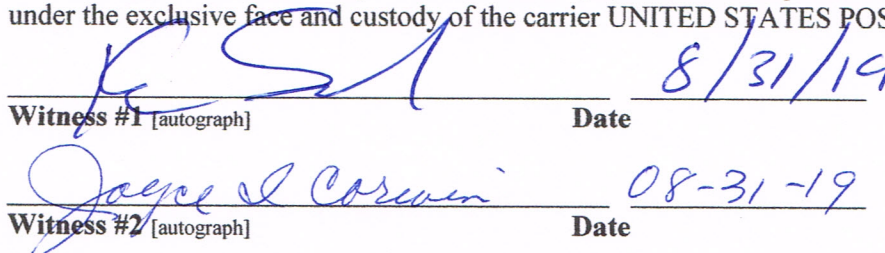 under the exclusive face and custody of the carrier UNITED STATES POS
8/31/19
Witness #1 [autograph] Date
Joyce I Corwin 08-31-19
Witness #2 [autograph] Date